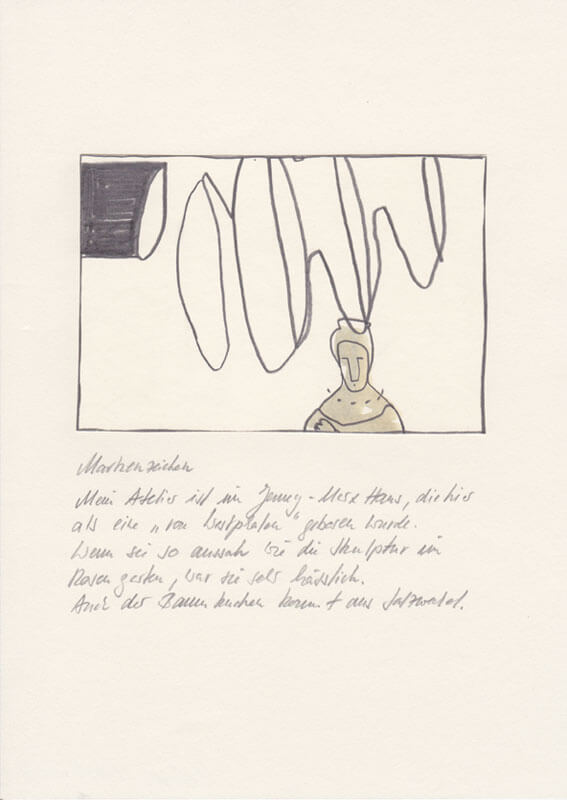 Markenzeichen
Mein Atelier ist im Jenny-Marx Haus, die hier
als eine „von Westphalen" geboren wurde.
Wenn sie so aussah wie die Skulptur im
Rosengarten, war sie sehr hässlich.
Auch der Baumkuchen kommt aus Salzwedel.